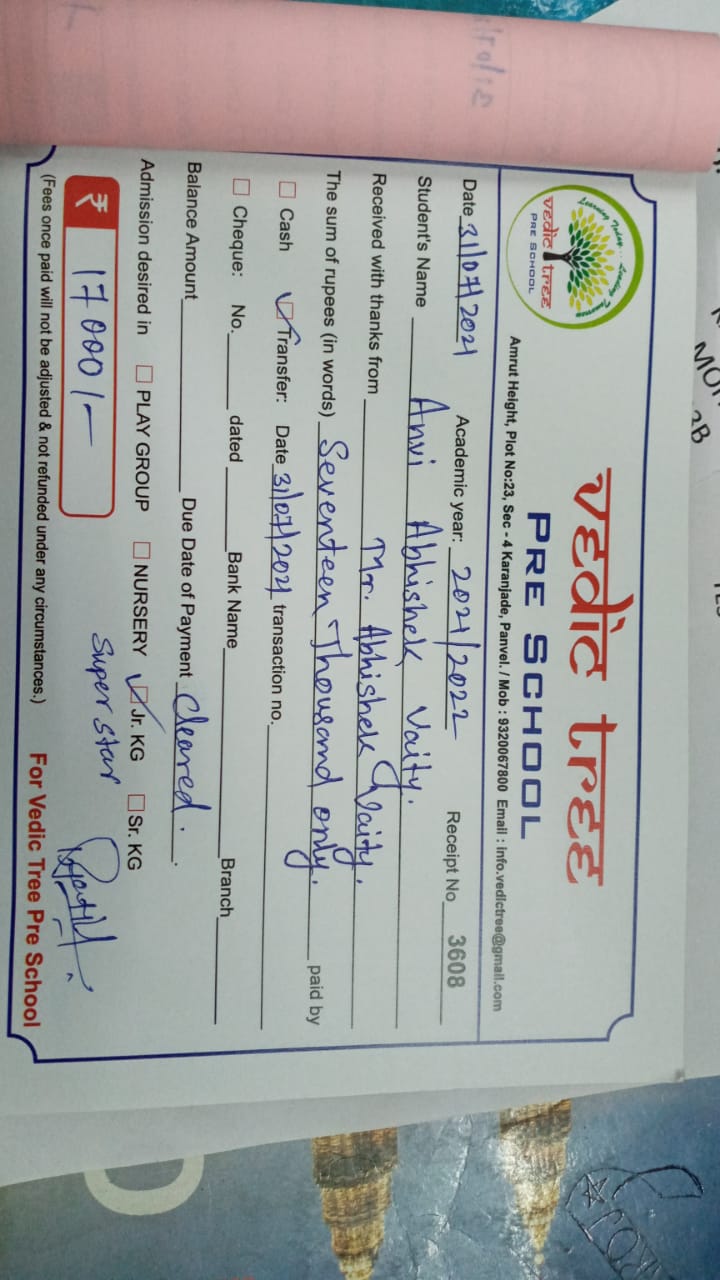 Learning Today... Leading Tomorrow
vedic tree
PRE SCHOOL
vedic tree
PRE SCHOOL
Amrut Height, Plot No:23, Sec - 4 Karanjade, Panvel. / Mob : 9320067800 Email : info.vedictree@gmail.com
Date 31/07/2021 Academic year: 2021/2022 Receipt No 3608
Student's Name Anvi Abhishek Vaity.
Received with thanks from Mr. Abhishek Vaity.
The sum of rupees (in words) Seventeen Thousand only. paid by
Cash Transfer: Date 31/07/2021 transaction no.
Cheque: No. dated Bank Name Branch
Balance Amount Due Date of Payment Cleared.
Admission desired in PLAY GROUP NURSERY Jr. KG Sr. KG
Super star
₹ 17000/-
(Fees once paid will not be adjusted & not refunded under any circumstances.) For Vedic Tree Pre School